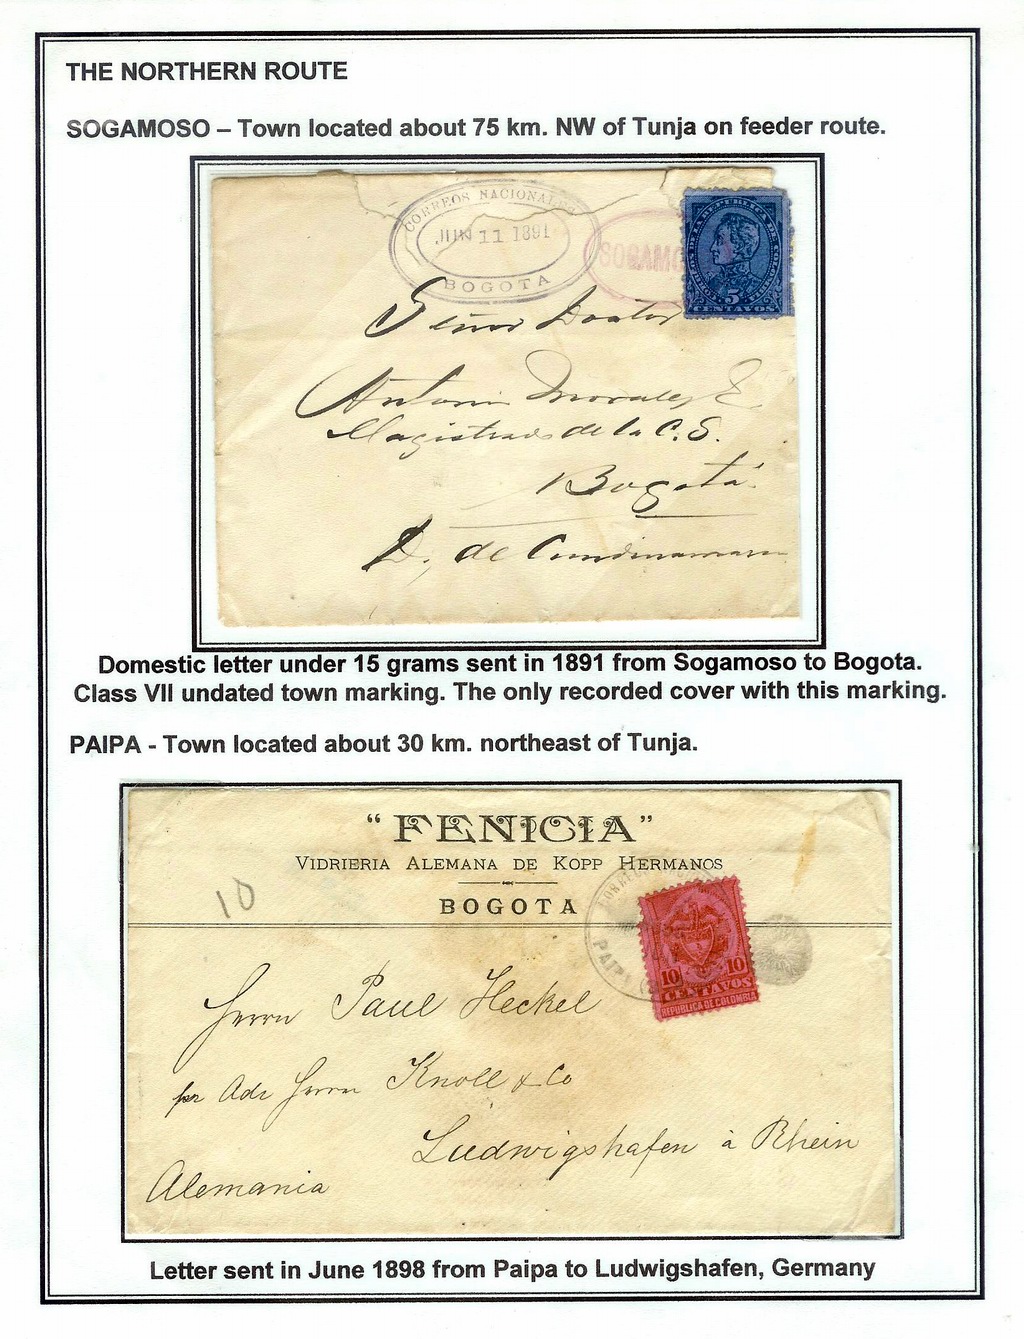 THE NORTHERN ROUTE
SOGAMOSO – Town located about 75 km. NW of Tunja on feeder route.
CORREOS NACIONALES
JUN 11 1891
BOGOTA
SOGAMO
5
CENTAVOS
Señor Doctor
Antonio Morales E.
Magistrado de la C. S.
Bogotá.
D. de Cundinamarca
Domestic letter under 15 grams sent in 1891 from Sogamoso to Bogota.
Class VII undated town marking. The only recorded cover with this marking.
PAIPA - Town located about 30 km. northeast of Tunja.
"FENICIA"
VIDRIERIA ALEMANA DE KOPP HERMANOS
BOGOTA
10
PAIPA
10 10
CENTAVOS
REPUBLICA DE COLOMBIA
Herrn Paul Heckel
pr Adr Herrn Knoll & Co
Ludwigshafen à Rhein
Alemania
Letter sent in June 1898 from Paipa to Ludwigshafen, Germany